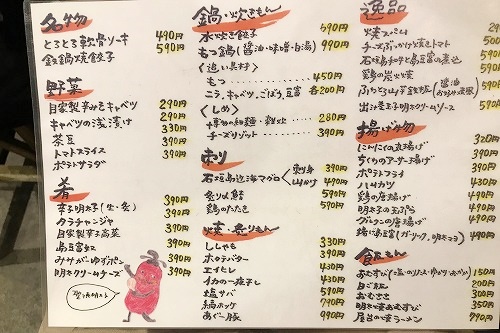 名物
とろとろ軟骨ソーキ 490円
鉄鍋焼餃子 590円
野菜
自家製辛みそキャベツ 290円
キャベツの浅漬け 290円
茶豆 330円
トマトスライス 390円
ポテトサラダ 390円
肴
辛子明太子(生・炙) 390円
タラチャンジャ 390円
自家製辛子高菜 390円
島豆富
みミガーゆずポン 390円
明太クリームチーズ 390円
鍋・炊きもん
水炊き餃子 590円
もつ鍋(醤油・味噌・白湯) 990円
〈追い具材〉
もつ 450円
ニラ、キャベツ、ごぼう、豆富 各200円
〈しめ〉
280円
チーズリゾット 390円
刺
石垣島近海マグロ 刺身 390円
山かけ 490円
炙り〆鯖 590円
鶏のたたき 590円
焼・炙りもん
ししゃも 330円
ホタテバター 390円
エイヒレ 430円
イカの一夜干し 430円
塩サバ 590円
縞ホッケ 790円
あぐー豚 990円
逸品
チーズぶっかけ焼きトマト
鶏の炭火焼
出汁巻玉子明太クリームソース 590円
揚げ物
にんにくの丸揚げ 320円
ちくわのアーサー揚げ 390円
ポテトフライ 390円
ハムカツ 430円
鶏の唐揚げ 490円
明太子の天ぷら 490円
グルクンの唐揚げ 490円
揚げ島豆富(ガーリック、明太マヨ) 490円
飯もん
150円
190円
おむすび 300円
明太焼おむすび 350円
屋台の焼ラーメン 790円